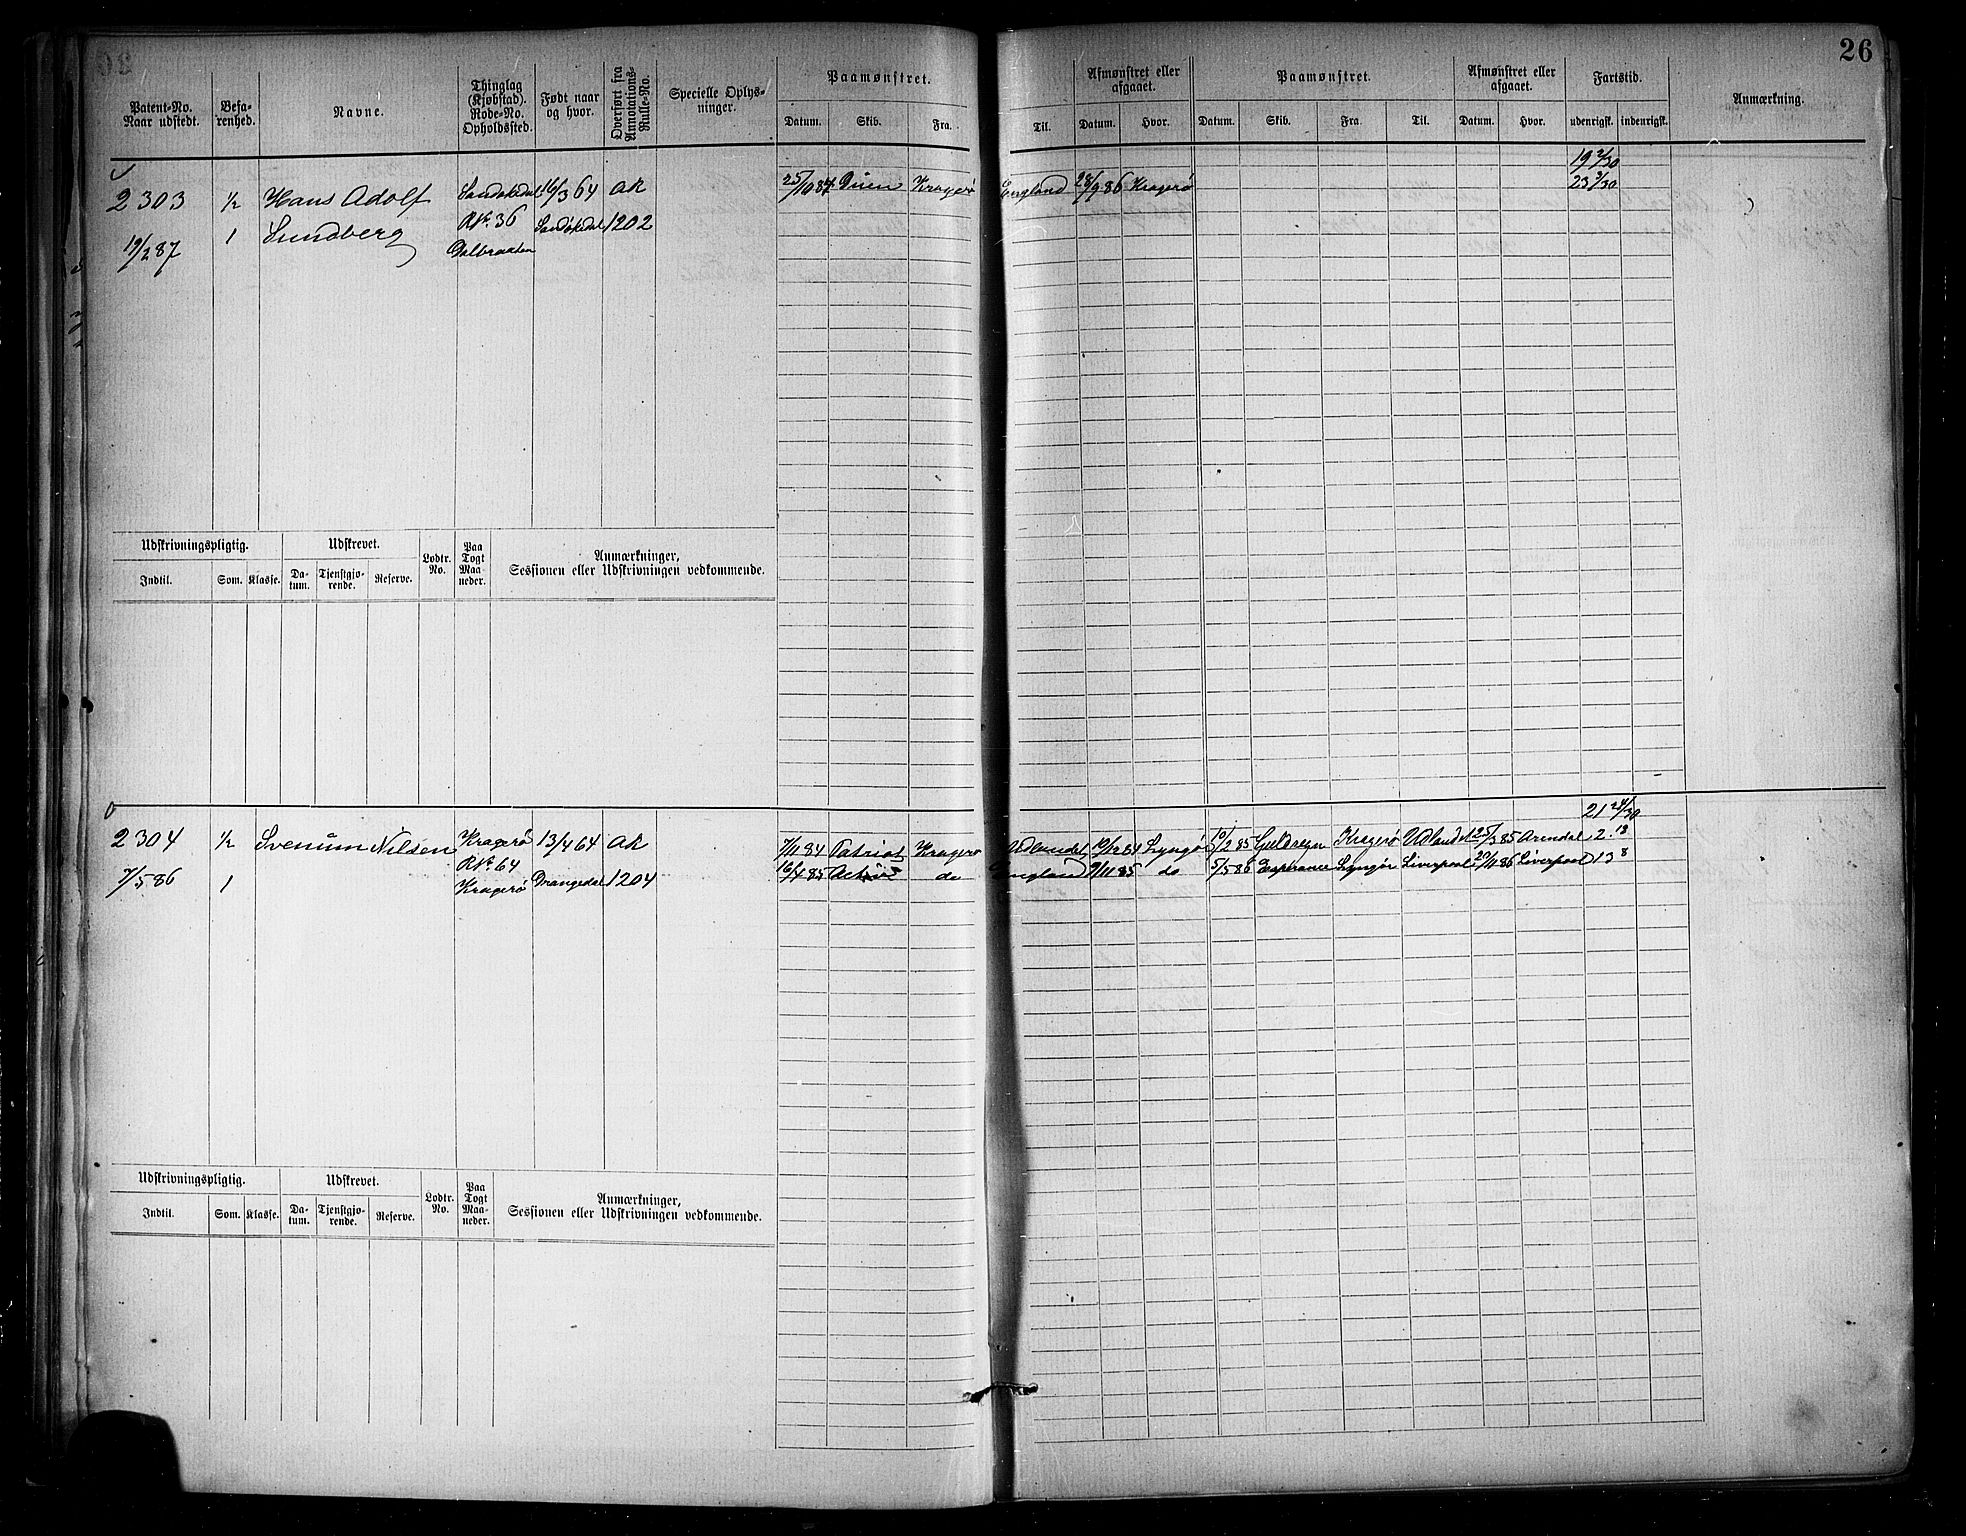 26
Patent-No.
Naar udstedt.
Befa-
renhed.
Navne.
Thinglag
(Kjøbstad).
Rode-No.
Opholdssted.
Født naar
og hvor.
Overført fra
Annotations-
Rulle-No.
Specielle Oplys-
ninger.
Paamønstret.
Datum. Skib. Fra. Til.
Afmønstret eller
afgaaet.
Datum. Hvor.
Paamønstret.
Datum. Skib. Fra. Til.
Afmønstret eller
afgaaet.
Datum. Hvor.
Fartstid.
udenrigsk. indenrigsk.
Anmærkning.
19 2/30
2303 1/2 Hans Adolf Sandøkedal 16/3 64 AR 25/10 84 Kragerø England 28/9 86 Kragerø 23 3/30
19/2 87 1 Sundberg RNo. 36 Sandøkedal 1202
Dalbraaten
Udskrivningspligtig. Udskrevet. Lodtr.
No. Paa
Togt
Maa-
neder. Anmærkninger,
Sessionen eller Udskrivningen vedkommende.
Indtil. Som. Klasse. Da-
tum. Tjenstgjø-
rende. Reserve.
21 24/30
2304 1/2 Svenum Nilsen Kragerø 13/4 64 AR 7/11 84 Patriot Kragerø Udlandet 10/12 84 Lyngør 10/2 85 Guldregn Kragerø Udlandet 25/3 85 Arendal 2. 18
7/5 86 1 RNo. 64 Kragerø Drangedal 1204 16/4 85 do England 9/11 85 do 5/5 86 Esperance Lyngør Liverpool 20/11 86 Liverpool 13 8
Udskrivningspligtig. Udskrevet. Lodtr.
No. Paa
Togt
Maa-
neder. Anmærkninger,
Sessionen eller Udskrivningen vedkommende.
Indtil. Som. Klasse. Da-
tum. Tjenstgjø-
rende. Reserve.